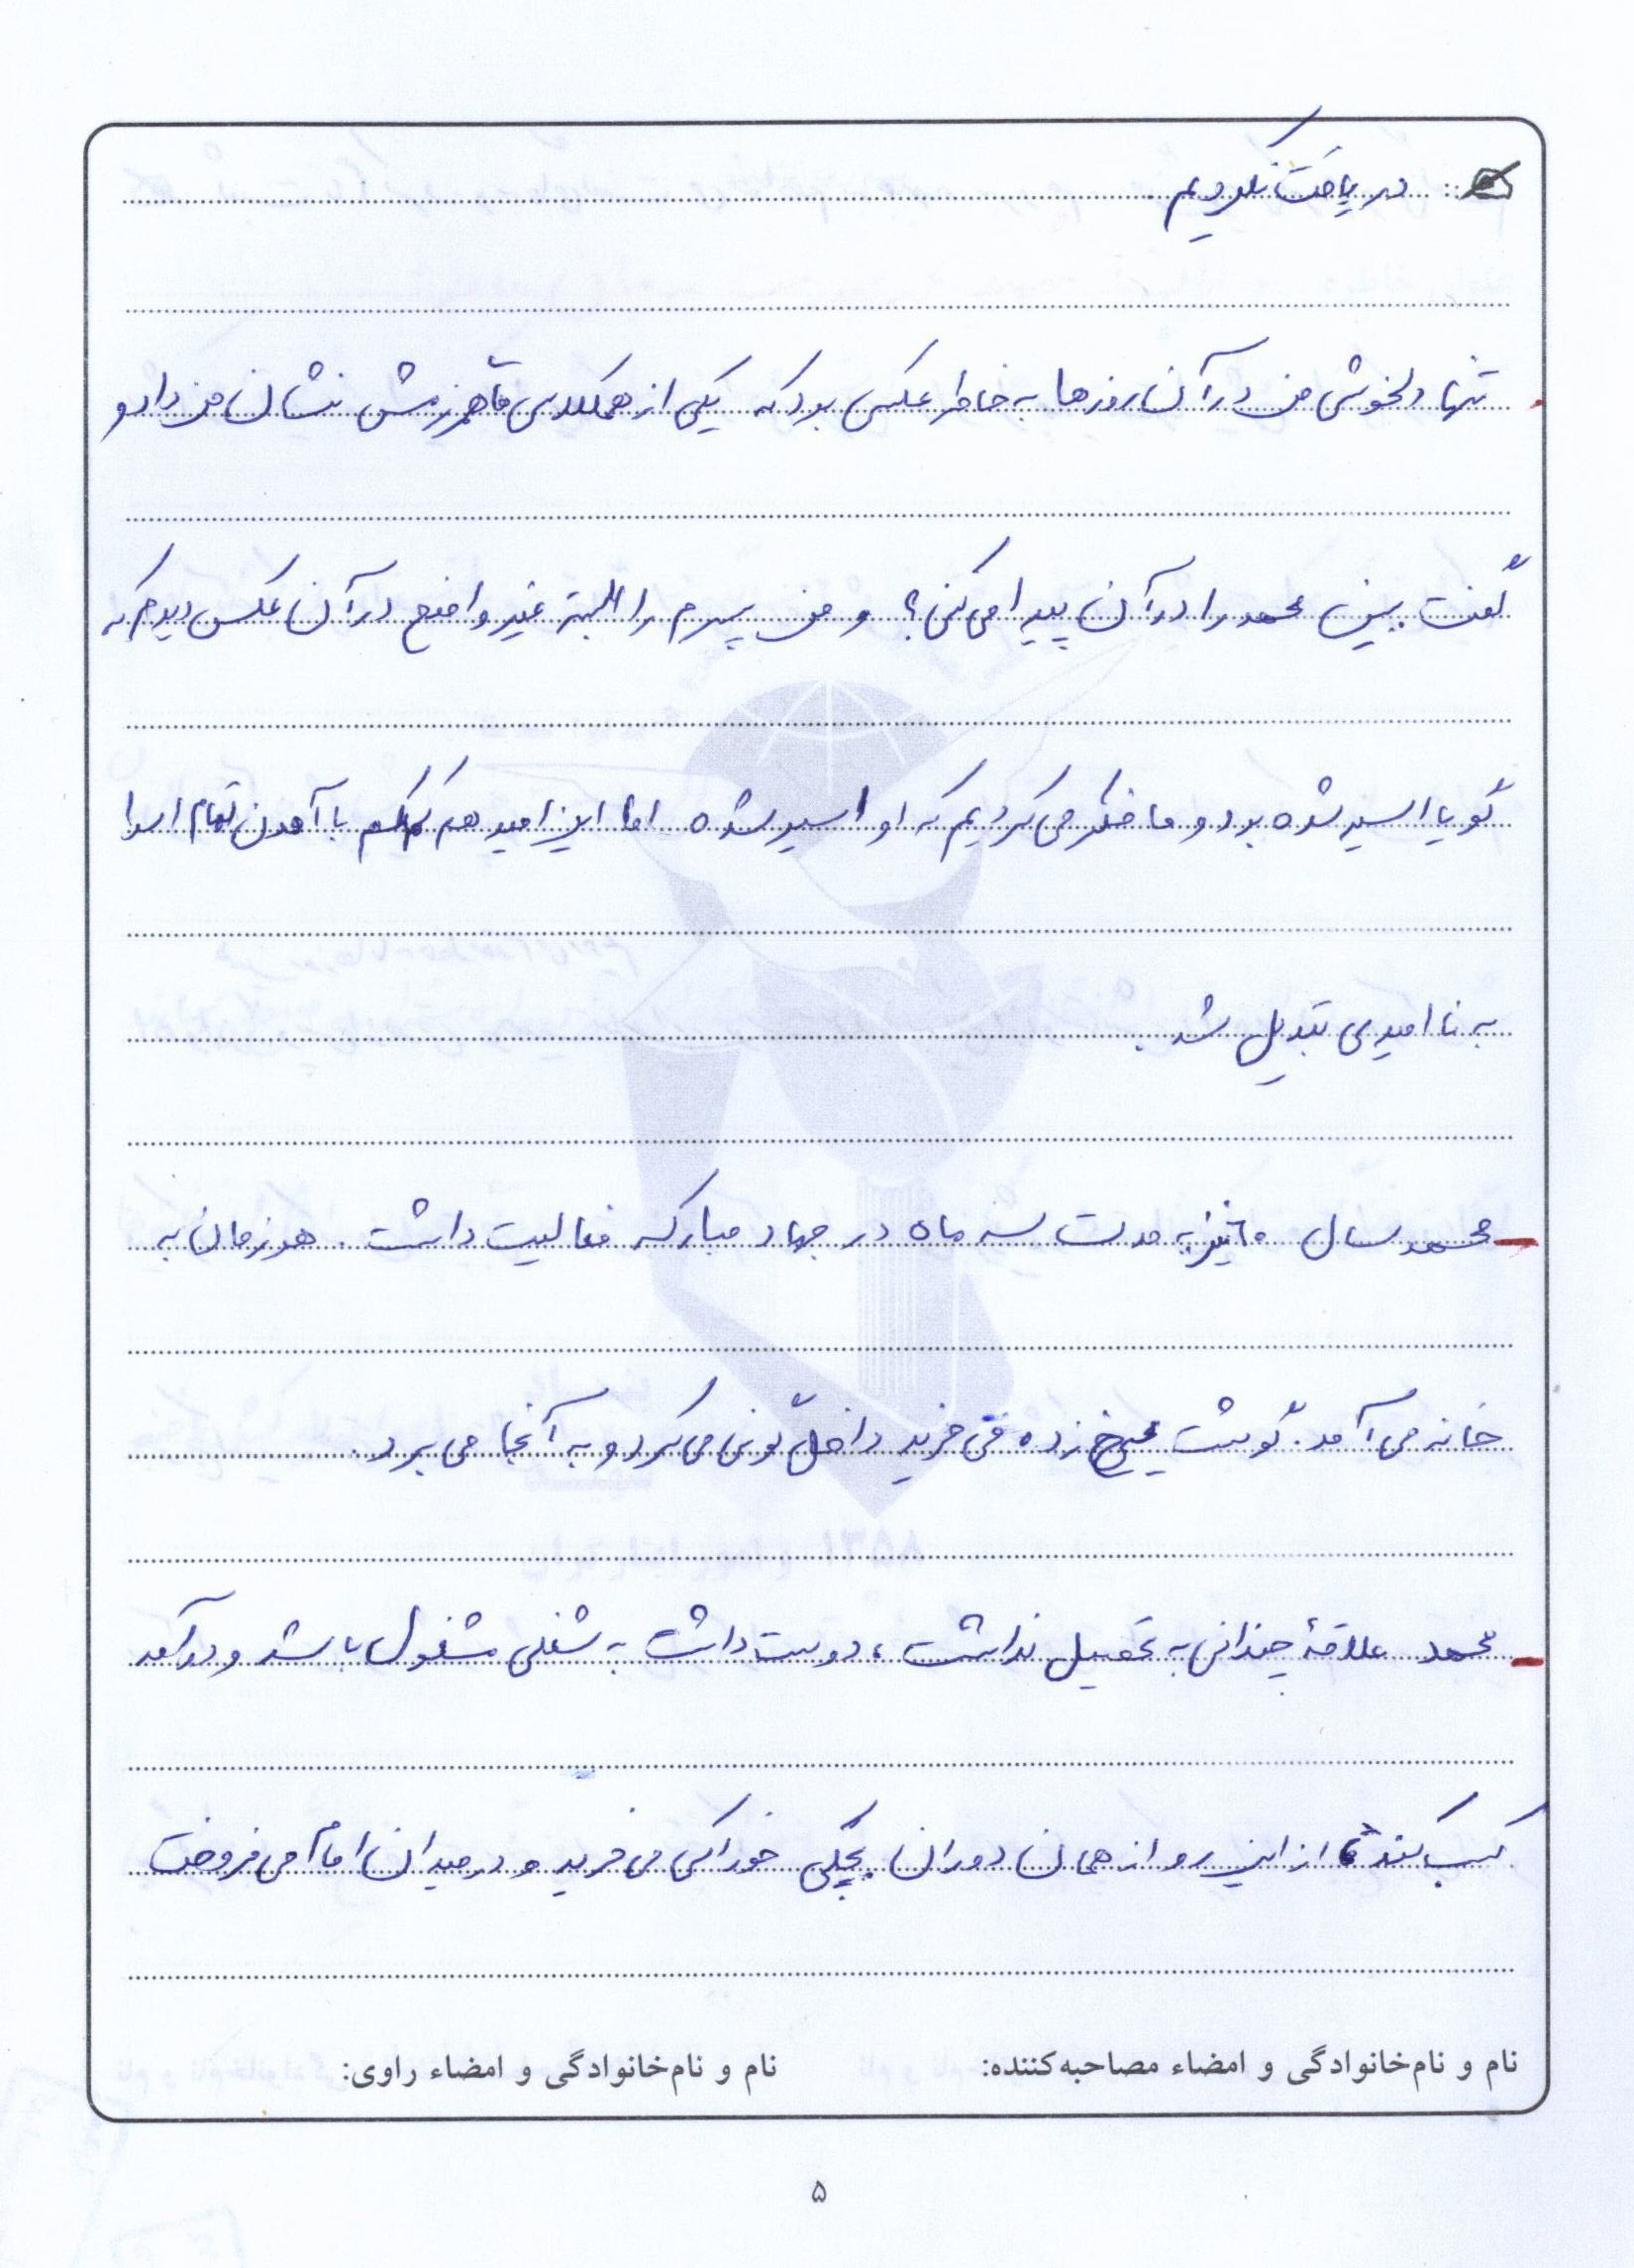 دریافت نکردیم.
تنها دلخوشی من در آن روزها به خاطر عکسی بود که یکی از همکلاسی همرزمش نشان من داد و
گفت ببین محمد را در آن پیدا می کنی؟ و من پسرم را البته غیر واضح در آن عکس دیدم که
گویا اسیر شده بود و ما فکر می کردیم که او اسیر شده اما این امید هم کم کم با آمدن تمام اسرا
به ناامیدی تبدیل شد.
محمد سال ٦٠ نیز به مدت سه ماه در جهاد مبارکه فعالیت داشت. هر زمان به
خانه می آمد. گوشت یخ زده می خرید داخل گونی می کرد و به آنجا می برد.
محمد علاقهٔ چندانی به تحصیل نداشت، دوست داشت به شغلی مشغول باشد و درآمد
کسب کند از این رو از همان دوران بچگی خوراکی می خرید و در میدان امام می فروخت
نام و نام‌خانوادگی و امضاء مصاحبه‌کننده: نام و نام‌خانوادگی و امضاء راوی:
۵